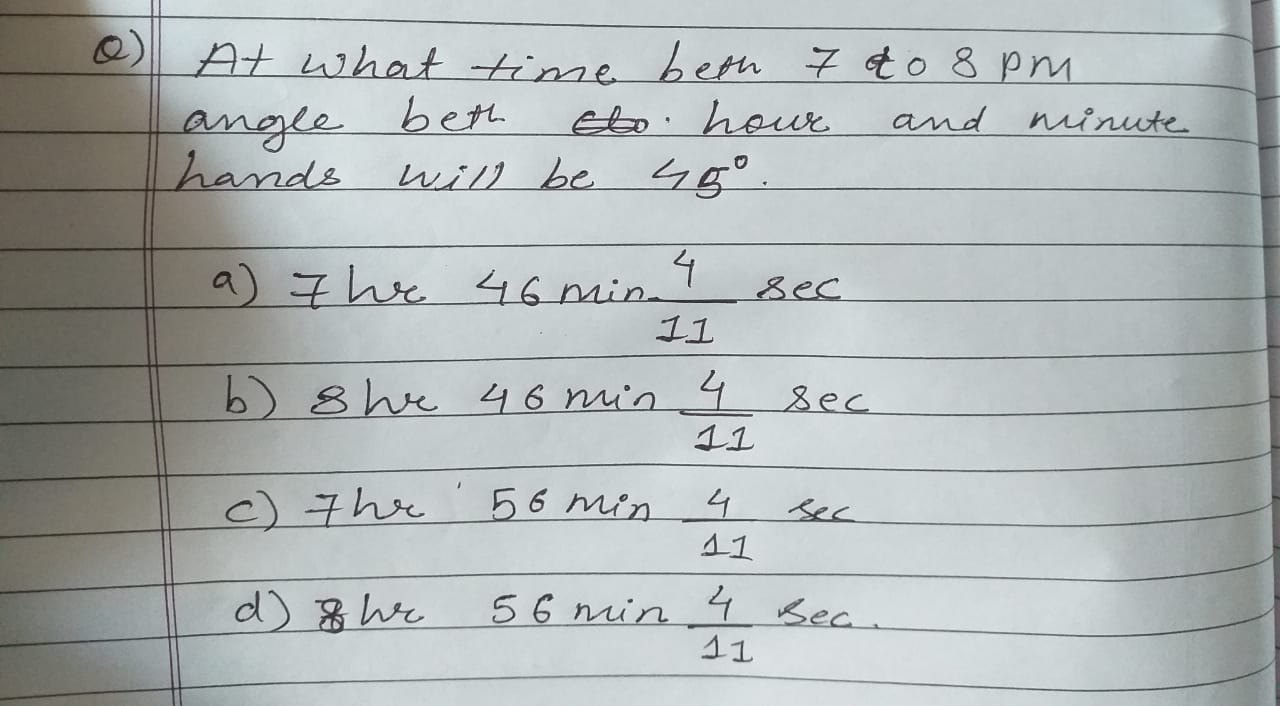 Q) At what time betn 7 to 8 pm
angle betn hour and minute
hands will be 45°.
a) 7 hr 46 min 4/11 sec
b) 8 hr 46 min 4/11 sec
c) 7 hr 56 min 4/11 sec
d) 8 hr 56 min 4/11 sec.